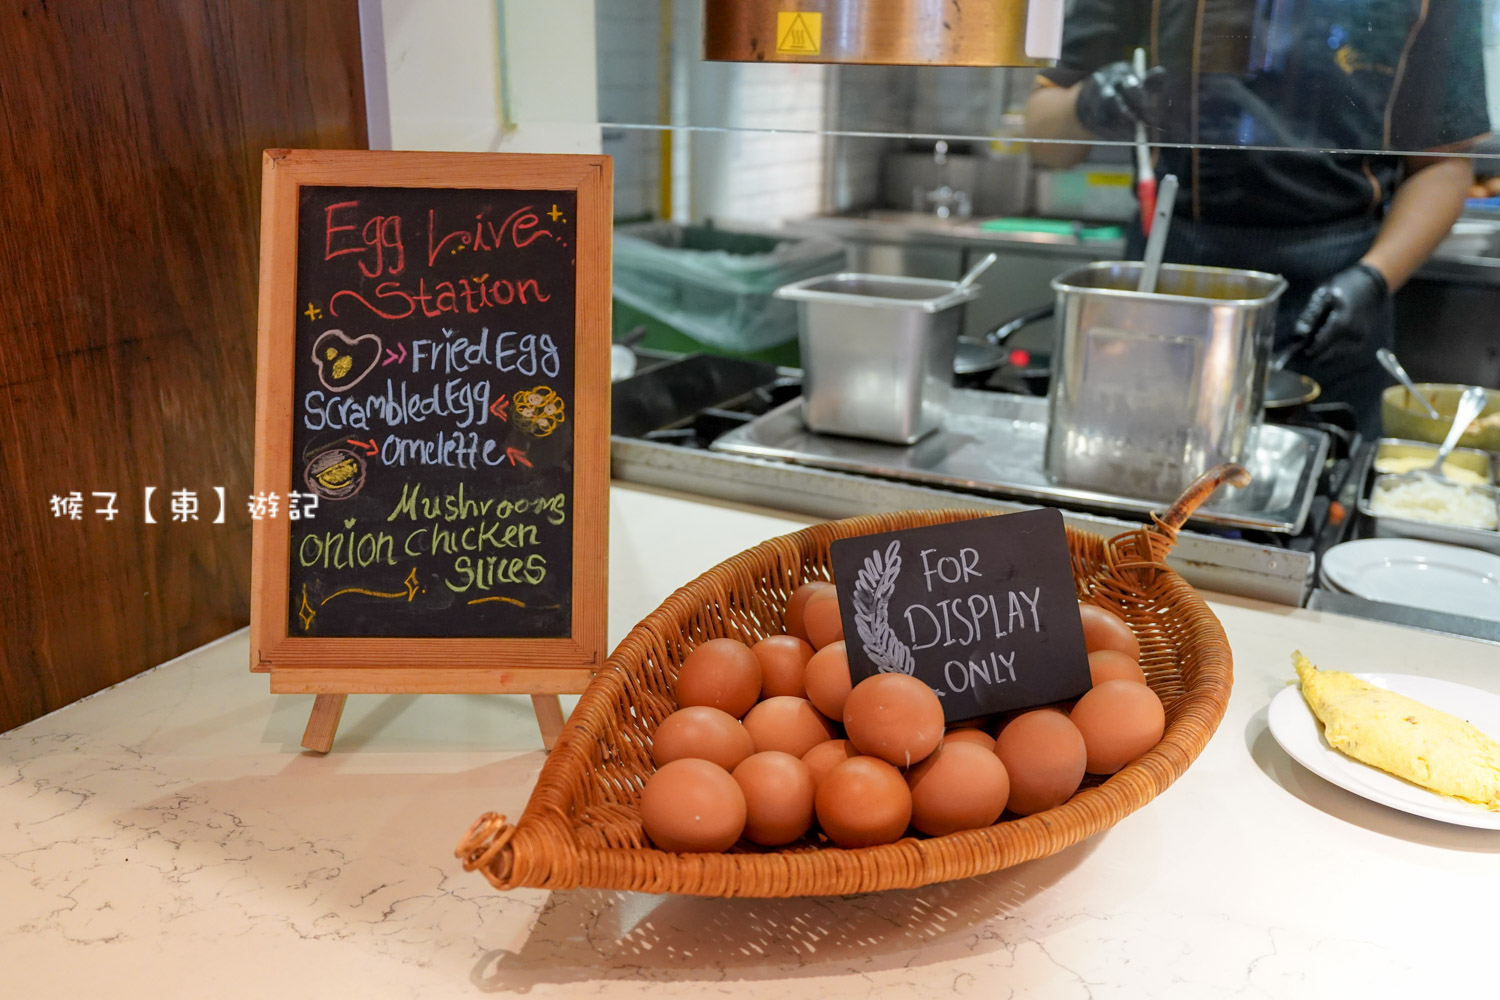 Egg Live
Station
Fried Egg
Scrambled Egg
omelette
Mushrooms
onion chicken
slices
猴子【東】遊記
FOR
DISPLAY
ONLY